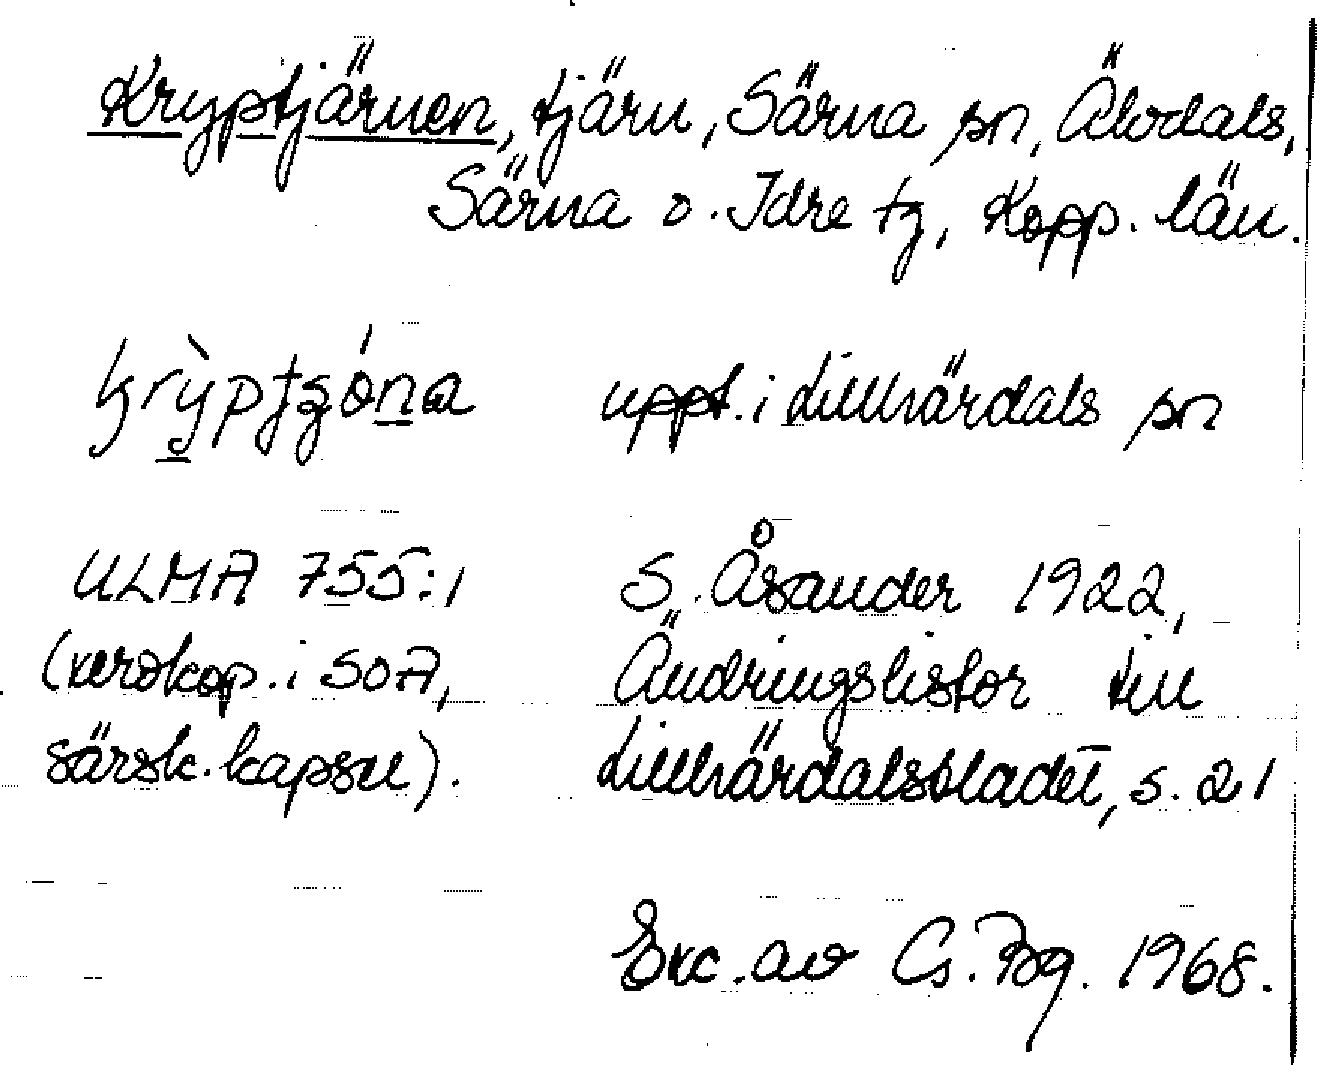 Kryptjärnen, tjärn, Särna sn, Älvdals,
Särna o. Idre tg, Kopp. län.
uppt. i Lillhärdals sn
ULMA 755:1 S. Åsander 1922,
(xeroxkop. i SOA, Ändringslistor till
särsk. kapsel). Lillhärdalsbladet, s. 21
Exc. av Cs. Bg. 1968.